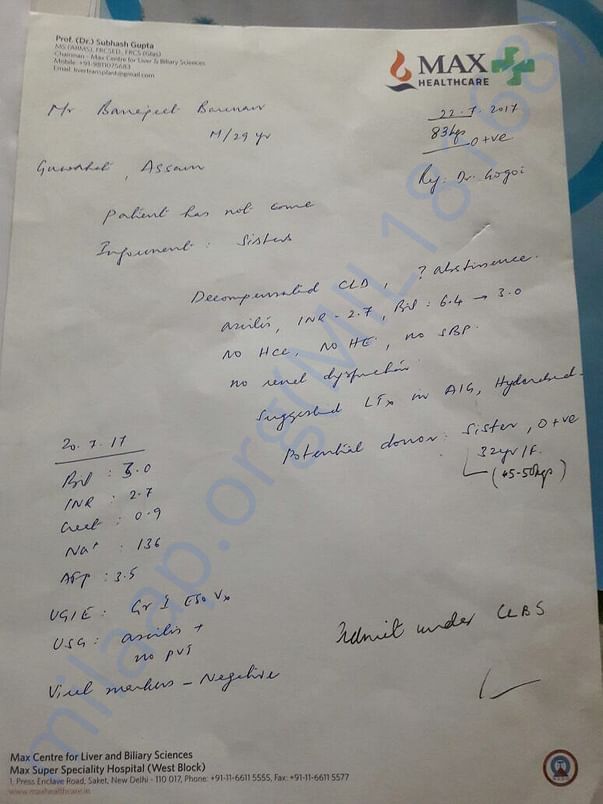 Prof. (Dr.) Subhash Gupta
MS (AIIMS), FRCSED, FRCS (Glas)
Chairman - Max Centre for Liver & Biliary Sciences
Mobile: +91-9811075683
Email: livertransplant@gmail.com
MAX
HEALTHCARE
Mr
M/29 yr
22.7.2017
83kgs
O+ve
Guwahati, Assam
Ref: Dr. Gogoi
Patient has not come
Informent: Sisters
Decompensated CLD, ? abstinence.
ascitis, INR - 2.7, Bil: 6.4 → 3.0
No HCC, No HE, no SBP.
no renal dysfunction
Suggested LTx in AIG, Hyderabad.
Potential donor: Sister, O+ve
32yr/F.
(45-50kgs)
20.7.17
Bil : 3.0
INR : 2.7
Creat : 0.9
Na+ : 136
AFP : 3.5
UGIE: Gr I Eso Vx
USG: ascitis +
no PVT
Viral markers - Negative
Admit under CLBS
Max Centre for Liver and Biliary Sciences
Max Super Speciality Hospital (West Block)
1, Press Enclave Road, Saket, New Delhi - 110 017, Phone: +91-11-6611 5555, Fax: +91-11-6611 5577
www.maxhealthcare.in